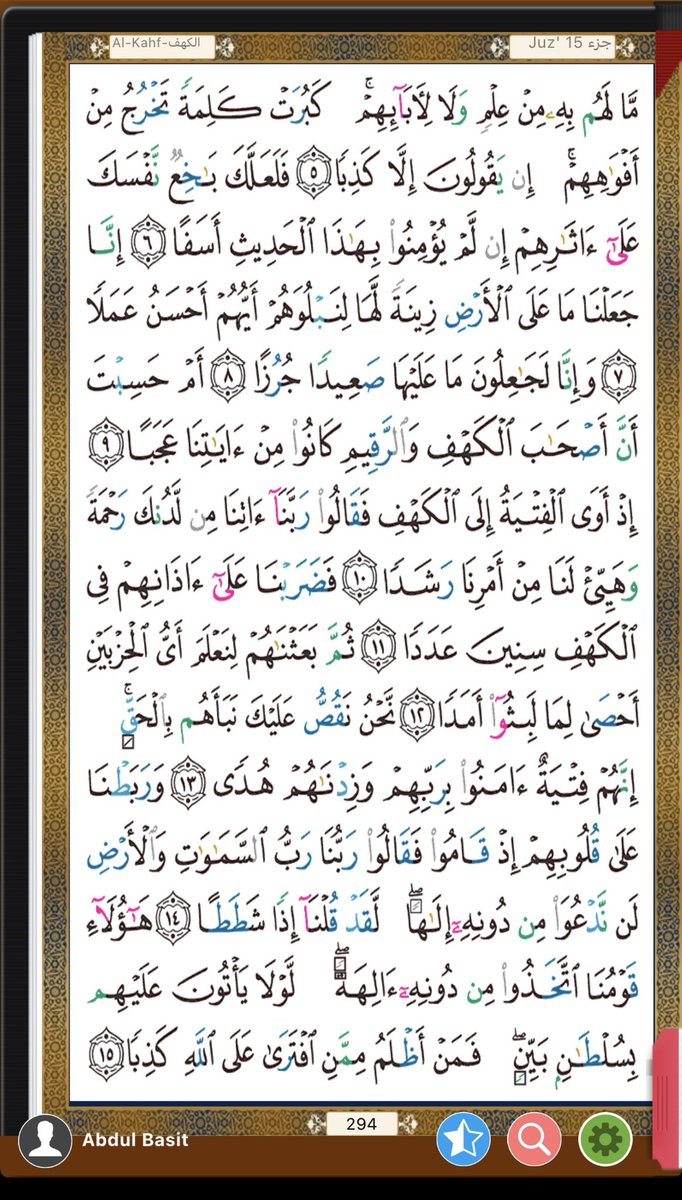 Al-Kahf-الكهف
Juz' 15 جزء
مَّا لَهُم بِهِۦ مِنْ عِلْمٍ وَلَا لِأٓبَآئِهِمْ ۚ كَبُرَتْ كَلِمَةً تَخْرُجُ مِنْ
أَفْوَٰهِهِمْ ۚ إِن يَقُولُونَ إِلَّا كَذِبًا ٥ فَلَعَلَّكَ بَـٰخِعٌ نَّفْسَكَ
عَلَىٰٓ ءَاثَـٰرِهِمْ إِن لَّمْ يُؤْمِنُوا۟ بِهَـٰذَا ٱلْحَدِيثِ أَسَفًا ٦ إِنَّا
جَعَلْنَا مَا عَلَى ٱلْأَرْضِ زِينَةً لَّهَا لِنَبْلُوَهُمْ أَيُّهُمْ أَحْسَنُ عَمَلًا
٧ وَإِنَّا لَجَـٰعِلُونَ مَا عَلَيْهَا صَعِيدًا جُرُزًا ٨ أَمْ حَسِبْتَ
أَنَّ أَصْحَـٰبَ ٱلْكَهْفِ وَٱلرَّقِيمِ كَانُوا۟ مِنْ ءَايَـٰتِنَا عَجَبًا ٩
إِذْ أَوَى ٱلْفِتْيَةُ إِلَى ٱلْكَهْفِ فَقَالُوا۟ رَبَّنَآ ءَاتِنَا مِن لَّدُنكَ رَحْمَةً
وَهَيِّئْ لَنَا مِنْ أَمْرِنَا رَشَدًا ١٠ فَضَرَبْنَا عَلَىٰٓ ءَاذَانِهِمْ فِى
ٱلْكَهْفِ سِنِينَ عَدَدًا ١١ ثُمَّ بَعَثْنَـٰهُمْ لِنَعْلَمَ أَىُّ ٱلْحِزْبَيْنِ
أَحْصَىٰ لِمَا لَبِثُوٓا۟ أَمَدًا ١٢ نَّحْنُ نَقُصُّ عَلَيْكَ نَبَأَهُم بِٱلْحَقِّ ۚ
إِنَّهُمْ فِتْيَةٌ ءَامَنُوا۟ بِرَبِّهِمْ وَزِدْنَـٰهُمْ هُدًى ١٣ وَرَبَطْنَا
عَلَىٰ قُلُوبِهِمْ إِذْ قَامُوا۟ فَقَالُوا۟ رَبُّنَا رَبُّ ٱلسَّمَـٰوَٰتِ وَٱلْأَرْضِ
لَن نَّدْعُوَا۟ مِن دُونِهِۦٓ إِلَـٰهًا ۖ لَّقَدْ قُلْنَآ إِذًا شَطَطًا ١٤ هَـٰٓؤُلَآءِ
قَوْمُنَا ٱتَّخَذُوا۟ مِن دُونِهِۦٓ ءَالِهَةً ۖ لَّوْلَا يَأْتُونَ عَلَيْهِم
بِسُلْطَـٰنٍۭ بَيِّنٍ ۖ فَمَنْ أَظْلَمُ مِمَّنِ ٱفْتَرَىٰ عَلَى ٱللَّهِ كَذِبًا ١٥
294
Abdul Basit